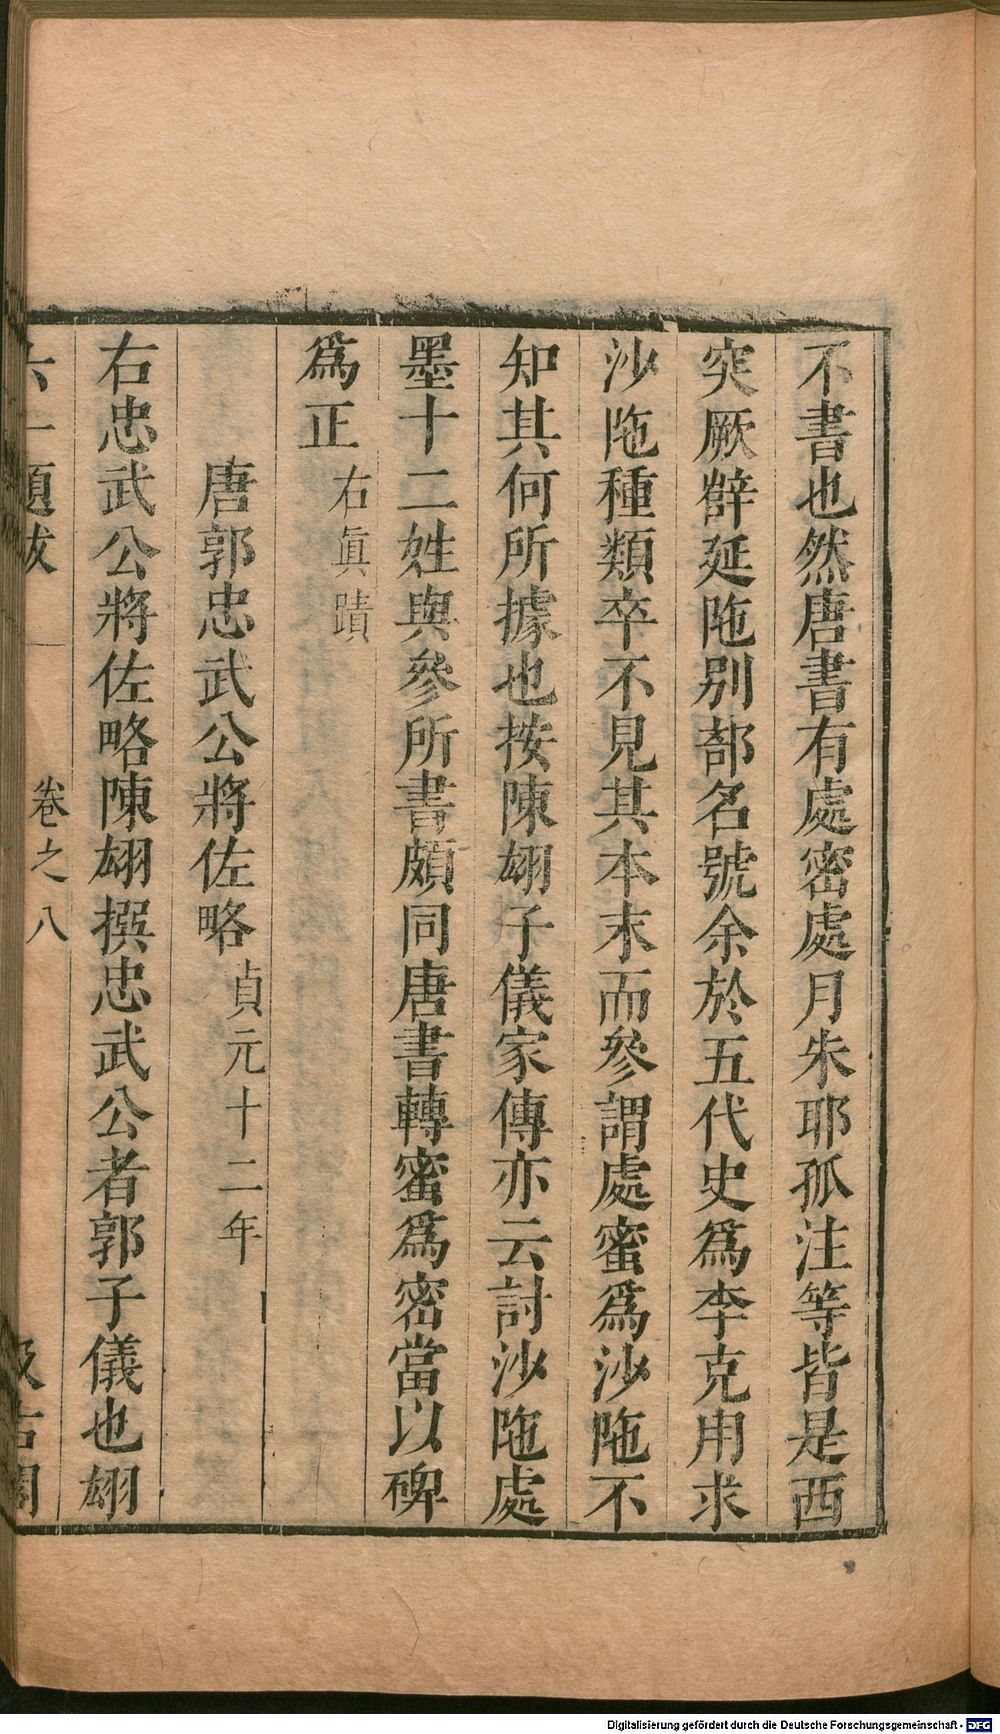 不書也然唐書有處密處月朱耶孤注等皆是西
突厥辥延陁别部名號余於五代史爲李克用求
沙陁種類卒不見其本末而參謂處蜜爲沙陁不
知其何所據也按陳翃子儀家傳亦云討沙陁處
墨十二姓與參所書頗同唐書轉蜜爲密當以碑
爲正右眞蹟
唐郭忠武公將佐略貞元十二年
右忠武公將佐略陳翃撰忠武公者郭子儀也翃
六一題跋 卷之八 汲古閣
Digitalisierung gefördert durch die Deutsche Forschungsgemeinschaft - DFG